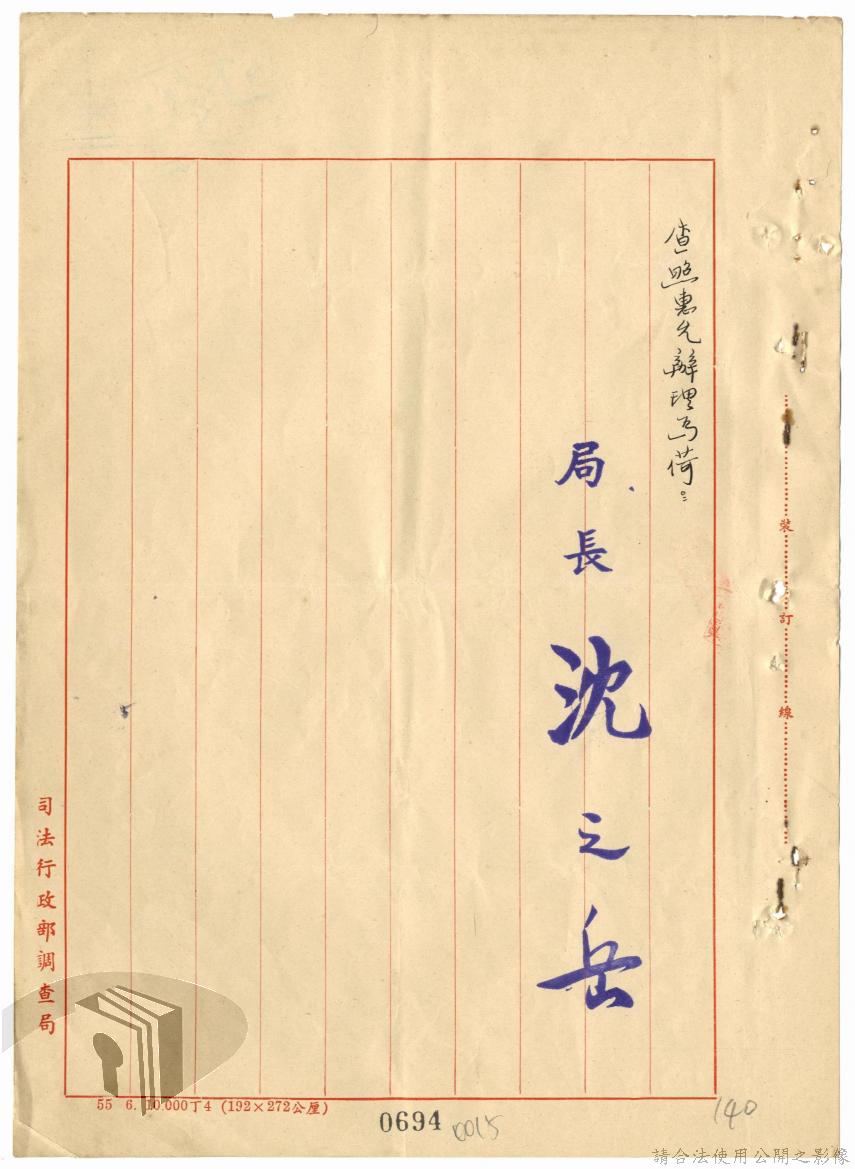 查照惠允辦理為荷。
局長 沈之岳
裝訂線
司法行政部調查局
55 6. 10.000丁4 (192×272公厘)
0694
0015
140
請合法使用公開之影像